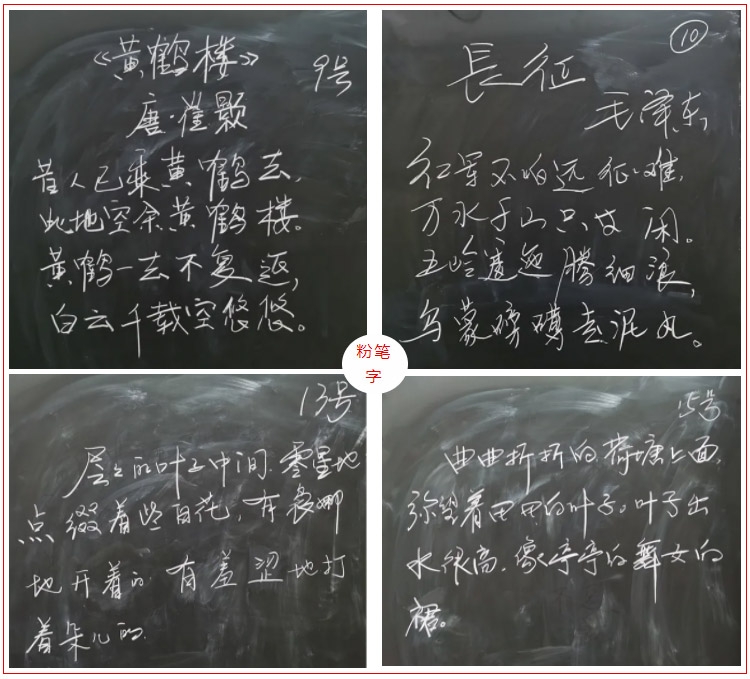 《黄鹤楼》
9号
唐·崔颢
昔人已乘黄鹤去,
此地空余黄鹤楼。
黄鹤一去不复返,
白云千载空悠悠。
10
長征
毛泽东
红军不怕远征难,
万水千山只等闲。
五岭逶迤腾细浪,
乌蒙磅礴走泥丸。
粉笔
字
13号
层层的叶子中间,零星地
点缀着些白花,有袅娜
地开着的,有羞涩地打
着朵儿的.
15号
曲曲折折的荷塘上面,
弥望着田田的叶子。叶子出
水很高,像亭亭的舞女的
裙。